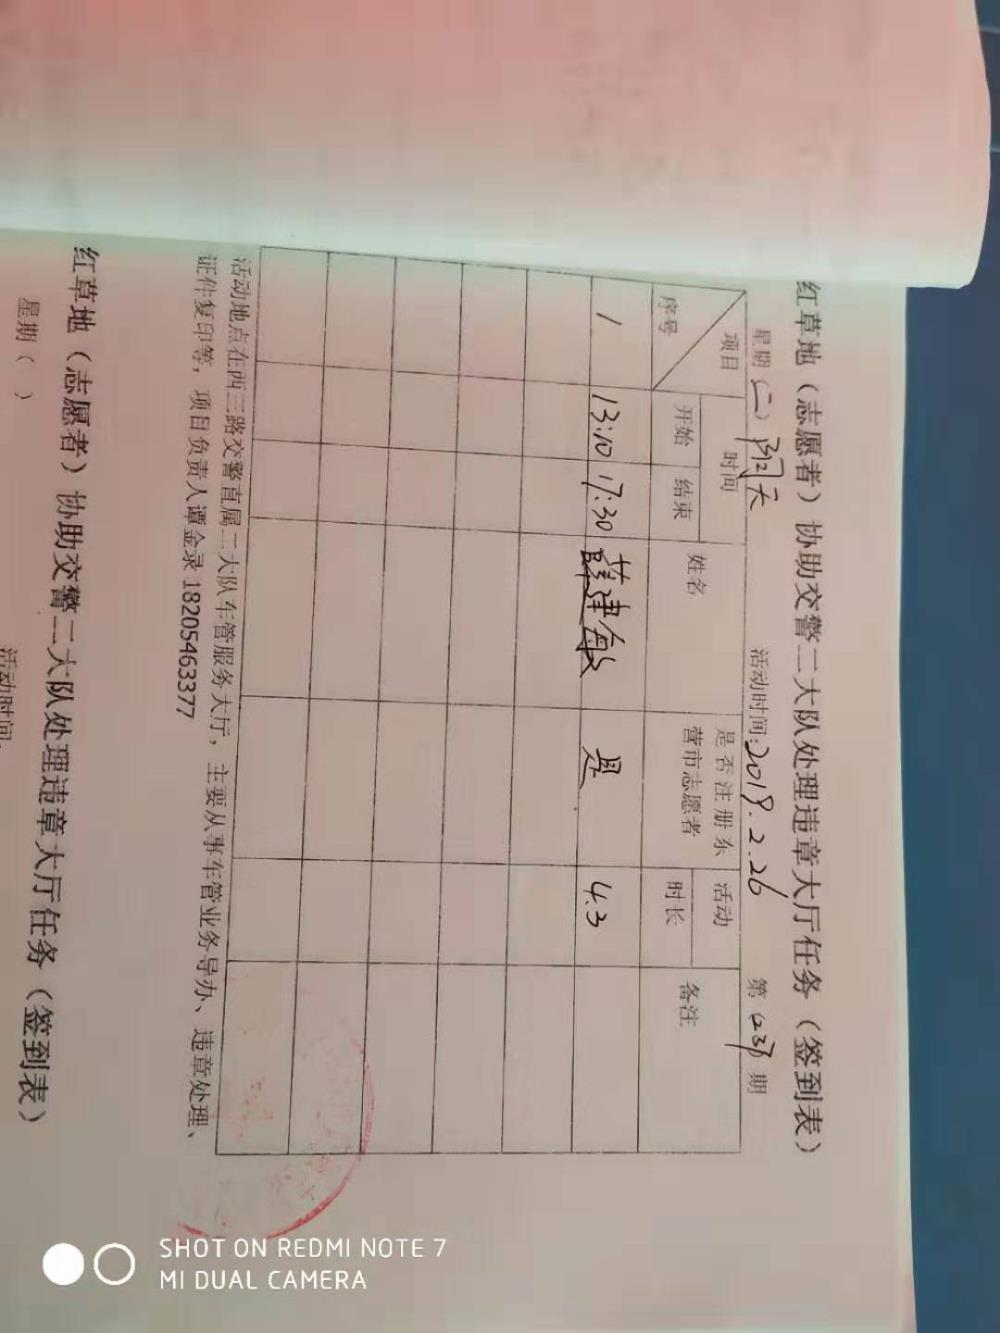 红草地（志愿者）协助交警二大队处理违章大厅任务（签到表）
星期（二） 天 活动时间:2019.2.26 第 期
项目 时间 姓名 是否注册东 活动 备注
序号 开始 结束 营市志愿者 时长
1 13:10 17:30 薛建敏 是 4.3
活动地点在西三路交警直属二大队车管服务大厅，主要从事车管业务导办、违章处理、
证件复印等，项目负责人谭金录 18205463377
红草地（志愿者）协助交警二大队处理违章大厅任务（签到表）
星期（ ） 活动时间:
SHOT ON REDMI NOTE 7
MI DUAL CAMERA